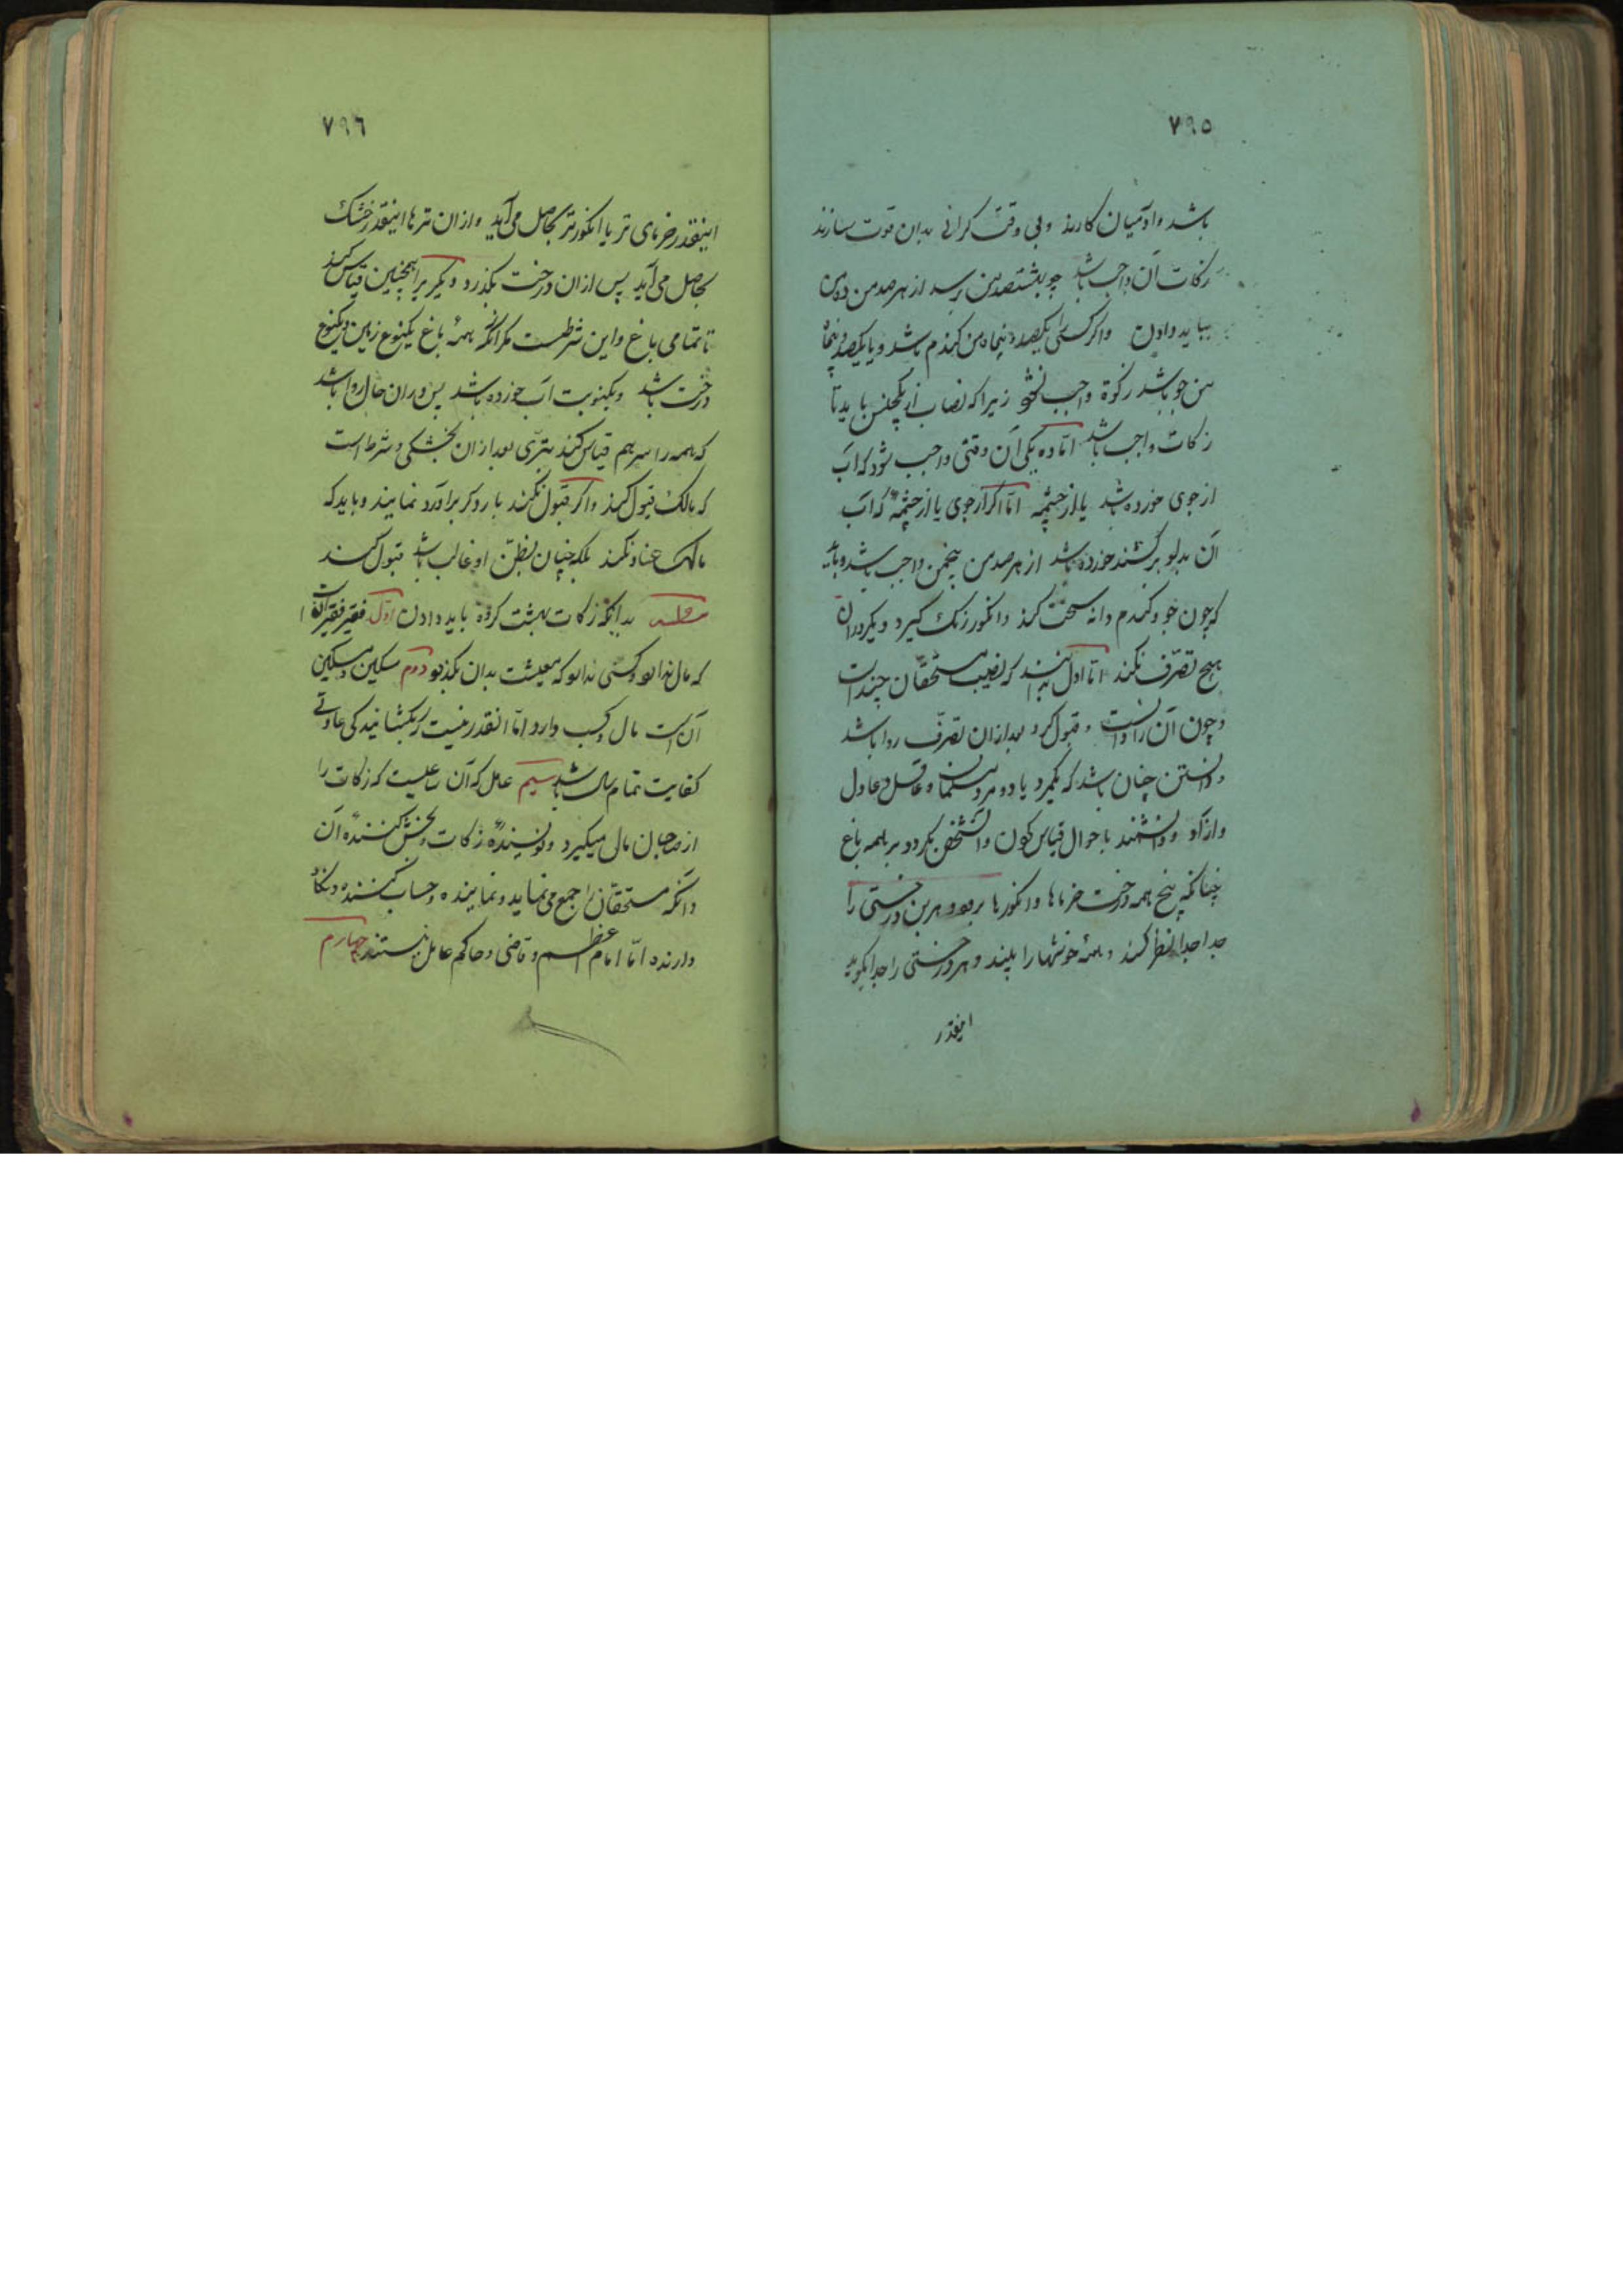 ۷۹۵
باشد و آدمیان کارند و بی وقت کرانی بدان قوت سازند
زکات آن واجب باشد چو بهشتصد من رسد از هر صد من ده من
بباید دادن واکر کسی را یکصد و پنجاه من کندم باشد و یا یکصد و پنجاه
من جو باشد زکوة واجب نشود زیرا که نصاب از یکجنس باید تا
زکات واجب باشد امّا ده یکی آن وقتی واجب شود که آب
از جوی خورده باشد یا از چشمه امّا اکر از جوی یا از چشمهٔ که آب
آن بدلو برکشند خورده باشد از هر صد من پنجمن واجب باشد و باید
که چون جو و کندم دانه سخت کند و انکور رنک کیرد دیکر در آن
هیچ تصرّف نکند امّا اوّل بداند که نصیب مستحقّان چند است
و چون آن را دانست و قبول کرد بعد از ان تصرّف روا باشد
و دانستن چنان باشد که یکمرد یا دو مرد مسلمان و عاقل و عادل
و آزاد و دانشمند باحوال قیاس کردن و آنشخص بکردد بر همه باغ
چنانکه بیخ همه درخت خرماها و انکورها برود و هر بن درختی را
جدا جدا نظر کند و همهٔ خوشها را بیند و هر درختی را جدا بکوید
اینقدر
۷۹٦
اینقدر خرمای تر یا انکور تر بحاصل می‌آید و از ان ترها اینقدر خشک
بحاصل می‌آید پس از ان درخت بکذرد و دیکر یرا همچنین قیاس کند
تا تمامی باغ و این شرطست مکر آنکه همهٔ باغ یکنوع زمین و یکنوع
درخت باشد و یکنوبت آب خورده باشد پس در ان حال روا باشد
که همه را سر بهم قیاس کنند بتری بعد از ان بخشکی و شرط است
که مالک قبول کند و اکر قبول نکند بار دکر برآورد نمایند و باید که
مالک عناد نکند بلکه چنان بظنّ او غالب باشد قبول کند
مسئله بدانکه زکات بهشت کروه باید دادن اوّل فقیر فقیر آنست
که مال ندارد و کسبی ندارد که معیشت بدان بکذرد دوم مسکین و مسکین
آن است مال و کسب دارد امّا انقدر نیست که بکتشانیدکی عادتی
کفایت تمام سال باشد سیم عامل که آن ساعیست که زکات را
از صاحبان مال میکیرد و نویسندهٔ زکات و بخش کنندهٔ آن
و آنکه مستحقّان را جمع می‌نماید و نماینده و حساب کننده و نکاه
دارنده امّا امام اعظم و قاضی و حاکم عامل نیستند چهارم